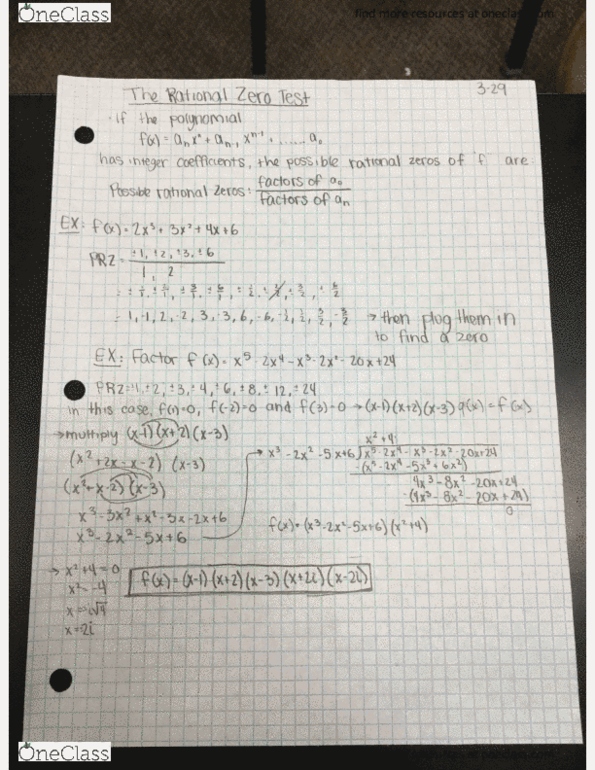 OneClass
find more resources at oneclass.com
3-29
The Rational Zero Test
· If the polynomial
f(x) = aₙxⁿ + aₙ₋₁ xⁿ⁻¹ + ...... a₀
has integer coefficients, the possible rational zeros of f are
Possible rational zeros: factors of a₀ / Factors of aₙ
EX: f(x) = 2x³ + 3x² + 4x + 6
PRZ = ±1, ±2, ±3, ±6 / 1, 2
= 1, -1, 2, -2, 3, -3, 6, -6, -1/2, 1/2, 3/2, -3/2 → then plug them in
to find a zero
EX: Factor f(x) = x⁵ - 2x⁴ - x³ - 2x² - 20x + 24
PRZ = 1, ±2, ±3, ±4, ±6, ±8, ±12, ±24
in this case, f(1)=0, f(-2)=0 and f(3)=0 → (x-1)(x+2)(x-3) q(x) = f(x)
→ multiply (x-1)(x+2)(x-3)
(x²+2x-x-2) (x-3)
(x²+x-2)(x-3)
x³-3x²+x²-3x-2x+6
x³-2x²-5x+6
x²+4
x³-2x²-5x+6 x⁵-2x⁴-x³-2x²-20x+24
-(x⁵-2x⁴-5x³+6x²)
4x³-8x²-20x+24
-(4x³-8x²-20x+24)
0
f(x) = (x³-2x²-5x+6)(x²+4)
→ x²+4=0
x²=-4
x=i√4
x=2i
f(x) = (x-1)(x+2)(x-3)(x+2i)(x-2i)
OneClass